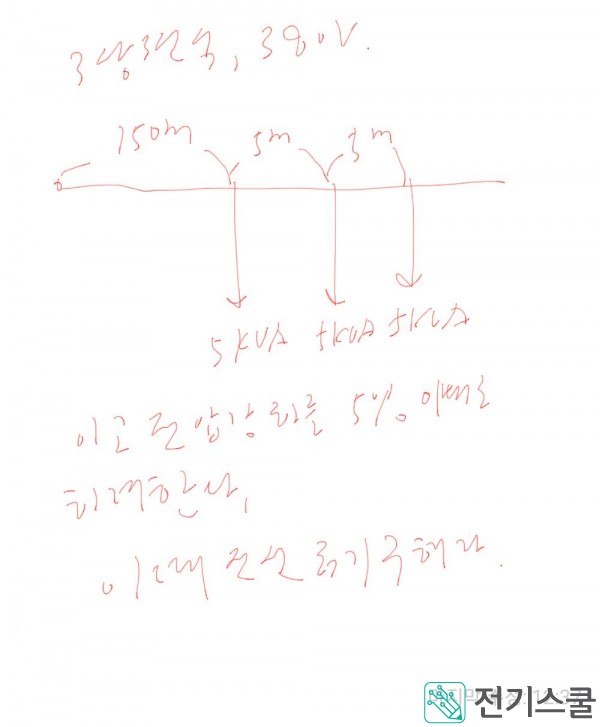 3상3선식, 380V.
150m 5m 3m
5KVA 5KVA 5KVA
이고 전압강하를 5% 이내로
하려한다,
이때 전선 굵기 구해라.
전기스쿨